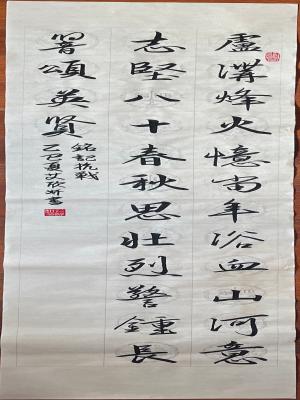 盧溝烽火憶當年浴血山河意
志堅八十春秋思壯烈警鍾長
鳴頌英贤
銘記抗戰
乙巳夏艾欣書